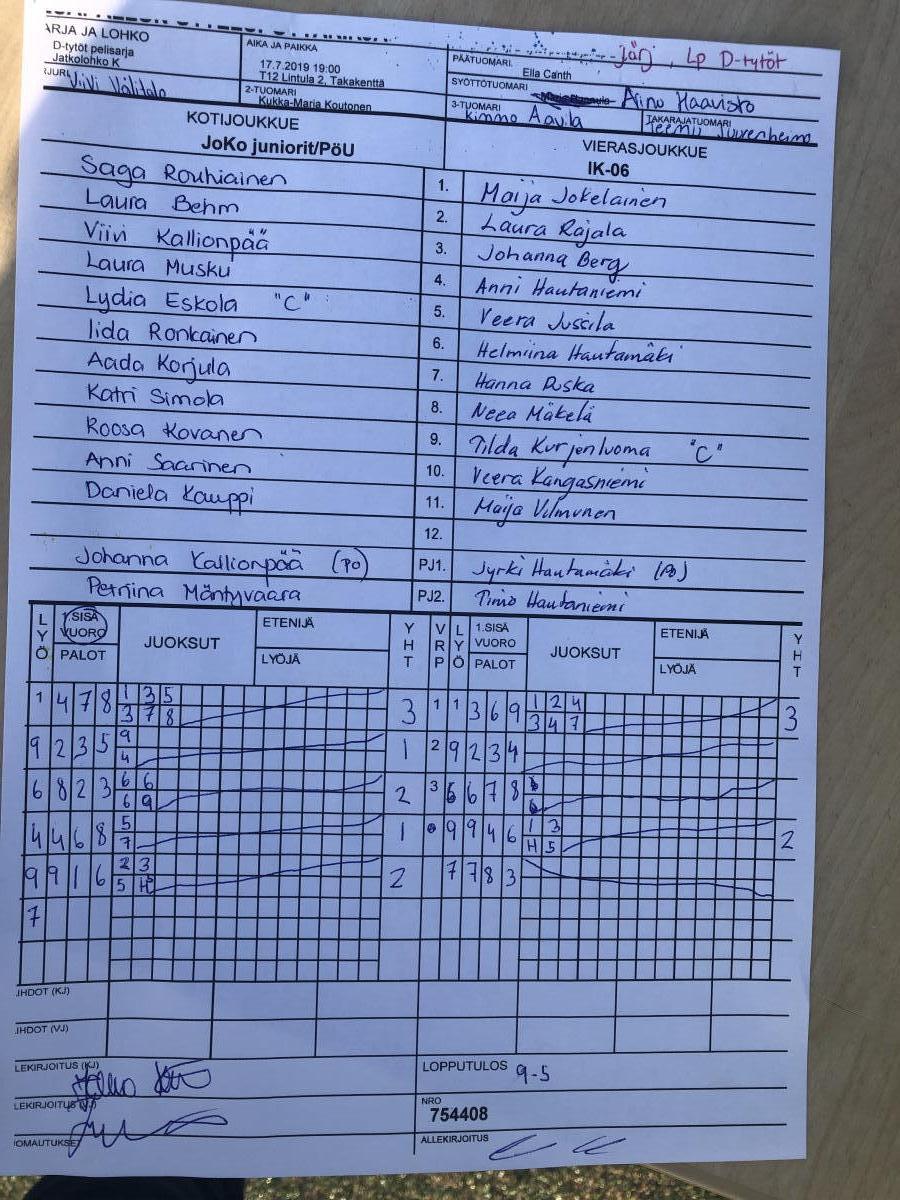 ARJA JA LOHKO
D-tytöt pelisarja
Jatkolohko K
AIKA JA PAIKKA
17.7.2019 19:00
T12 Lintula 2, Takakenttä
Järj, Lp D-tytöt
PÄÄTUOMARI
Ella Canth
SYÖTTÖTUOMARI
Aino Haavisto
Viivi Välitalo
2-TUOMARI
Kukka-Maria Koutonen
3-TUOMARI
Kimmo Aavila
TAKARAJATUOMARI
KOTIJOUKKUE
JoKo juniorit/PöU
VIERASJOUKKUE
IK-06
Saga Rouhiainen 1. Maija Jokelainen
Laura Behm 2. Laura Rajala
Viivi Kallionpää 3. Johanna Berg
Laura Musku 4. Anni Hautaniemi
Lydia Eskola "C" 5. Veera Jussila
Iida Ronkainen 6. Helmiina Hautamäki
Aada Korjula 7. Hanna Puska
Katri Simola 8. Neea Mäkelä
Roosa Kovanen 9. Tilda Kurjenluoma "C"
Anni Saarinen 10. Veera Kangasniemi
Daniela Kauppi 11. Maija Vilmunen
12.
Johanna Kallionpää (PO) PJ1. Jyrki Hautamäki (PO)
Petriina Mäntyvaara PJ2. Timo Hautaniemi
LYÖ 1.SISÄ VUORO PALOT JUOKSUT ETENIJÄ LYÖJÄ YHT VRP LYÖ 1.SISÄ VUORO PALOT JUOKSUT ETENIJÄ LYÖJÄ YHT
1 4 7 8 1 3 5 3 1 1 3 6 9 1 2 4 3
3 7 8 3 4 7
9 2 3 5 9 1 2 9 2 3 4
4
6 8 2 3 6 6 2 3 6 6 7 8
6 9
4 4 6 8 5 1 9 9 4 6 1 3 2
7 H 5
9 9 1 6 2 3 2 7 7 8 3
5 H
7
LOPPUTULOS 9-5
NRO
754408
ALLEKIRJOITUS